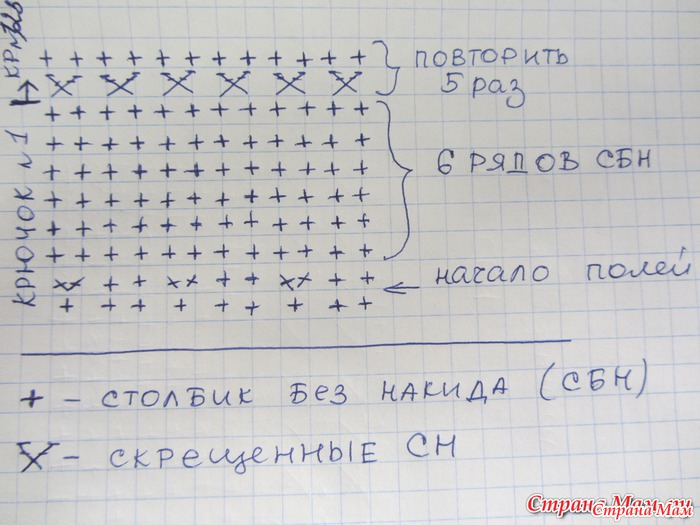 ПОВТОРИТЬ
5 раз
6 РЯДОВ СБН
КРЮЧОК №1
начало полей
+ - СТОЛБИК БЕЗ НАКИДА (СБН)
- СКРЕЩЕННЫЕ СН
Страна Мам.ру
Страна Мам